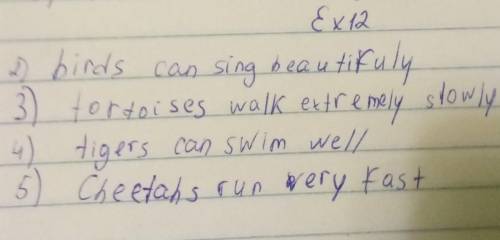 Ex12
2) birds can sing beautifuly
3) tortoises walk extremely slowly
4) tigers can swim well
5) Cheetahs run very fast